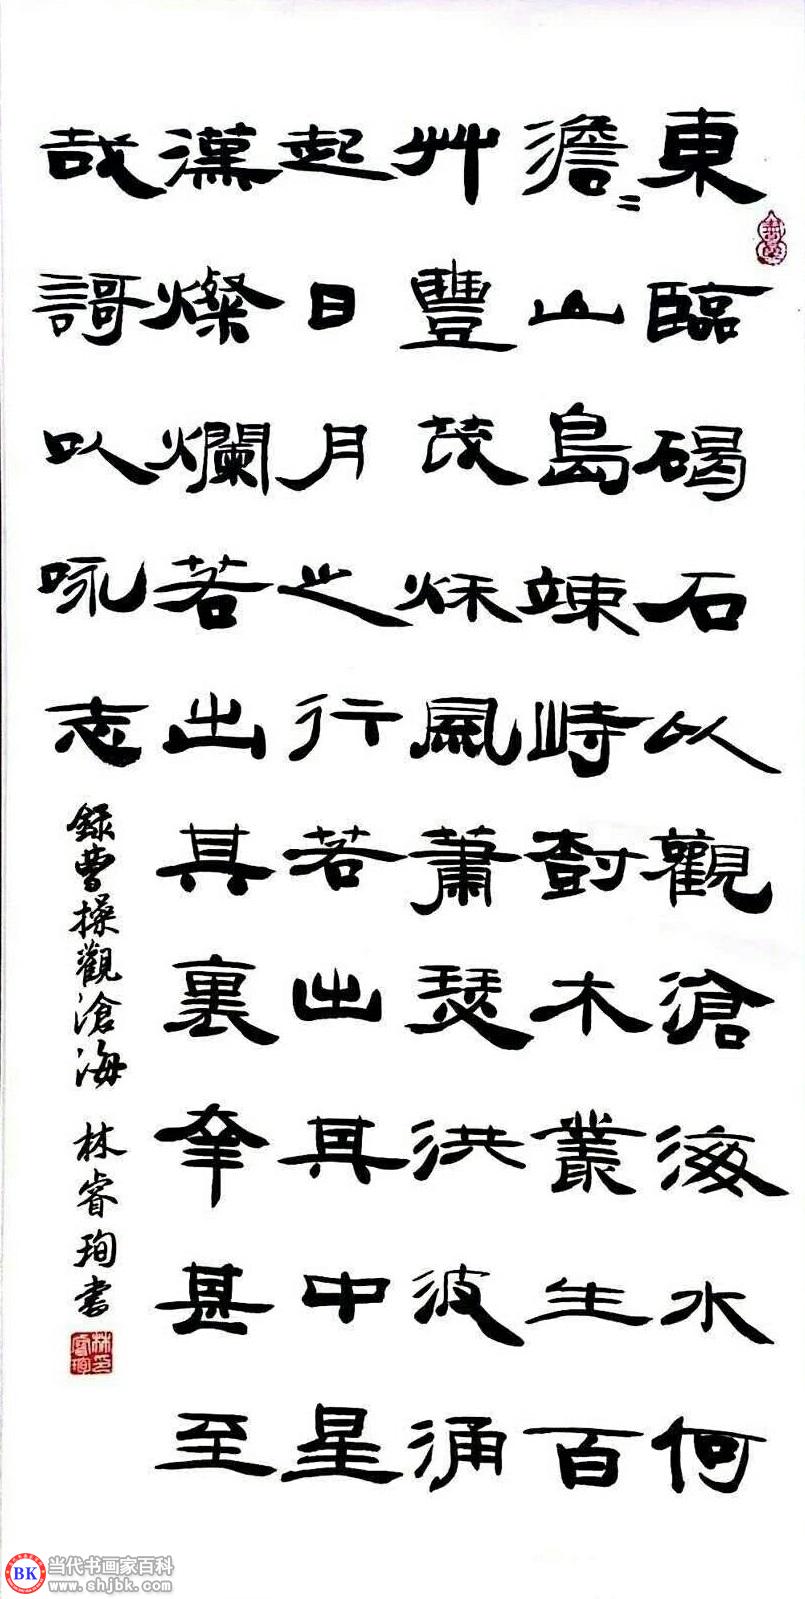 東臨碣石以觀滄海水何
澹〻山島竦峙樹木叢生百
艸豐茂秌風蕭瑟洪波涌
起日月之行若出其中星
漢燦爛若出其裏幸甚至
哉謌以咏志
錄曹操觀滄海 林睿珣書
BK 当代书画家百科
www.shjbk.com